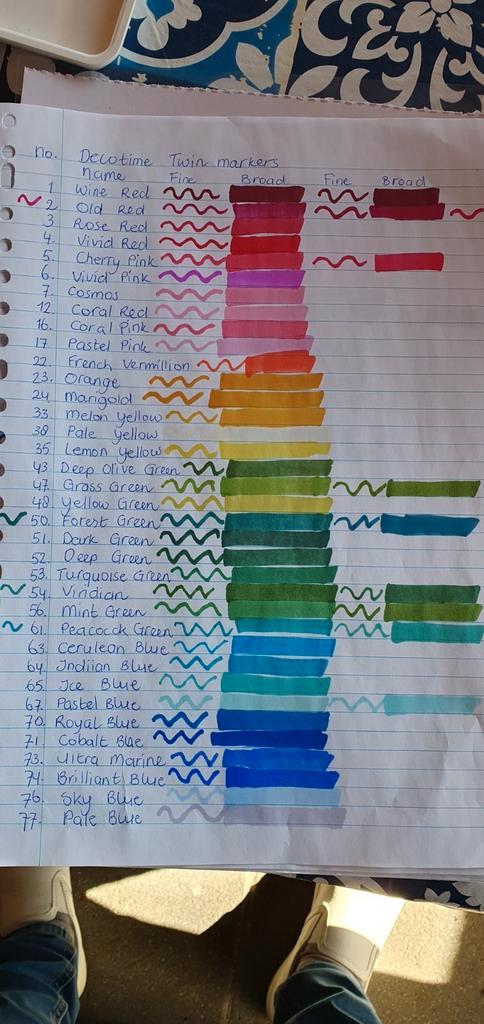 no. Decotime Twin markers
name Fine Broad Fine Broad
1 Wine Red
2 Old Red
3 Rose Red
4. Vivid Red
5. Cherry Pink
6. Vivid Pink
7. Cosmos
12 Coral Red
16. Coral Pink
17 Pastel Pink
22. French Vermillion
23. Orange
24 marigold
33 melon Yellow
38 Pale Yellow
35 Lemon Yellow
43 Deep Olive Green
47 Grass Green
48 Yellow Green
50. Forest Green
51. Dark Green
52. Deep Green
53. Turquoise Green
54. Viridian
56. Mint Green
61. Peacock Green
63. Cerulean Blue
64. Indiian Blue
65. Ice Blue
67. Pastel Blue
70. Royal Blue
71. Cobalt Blue
73. Ultra Marine
74. Brilliant Blue
76. Sky Blue
77. Pale Blue